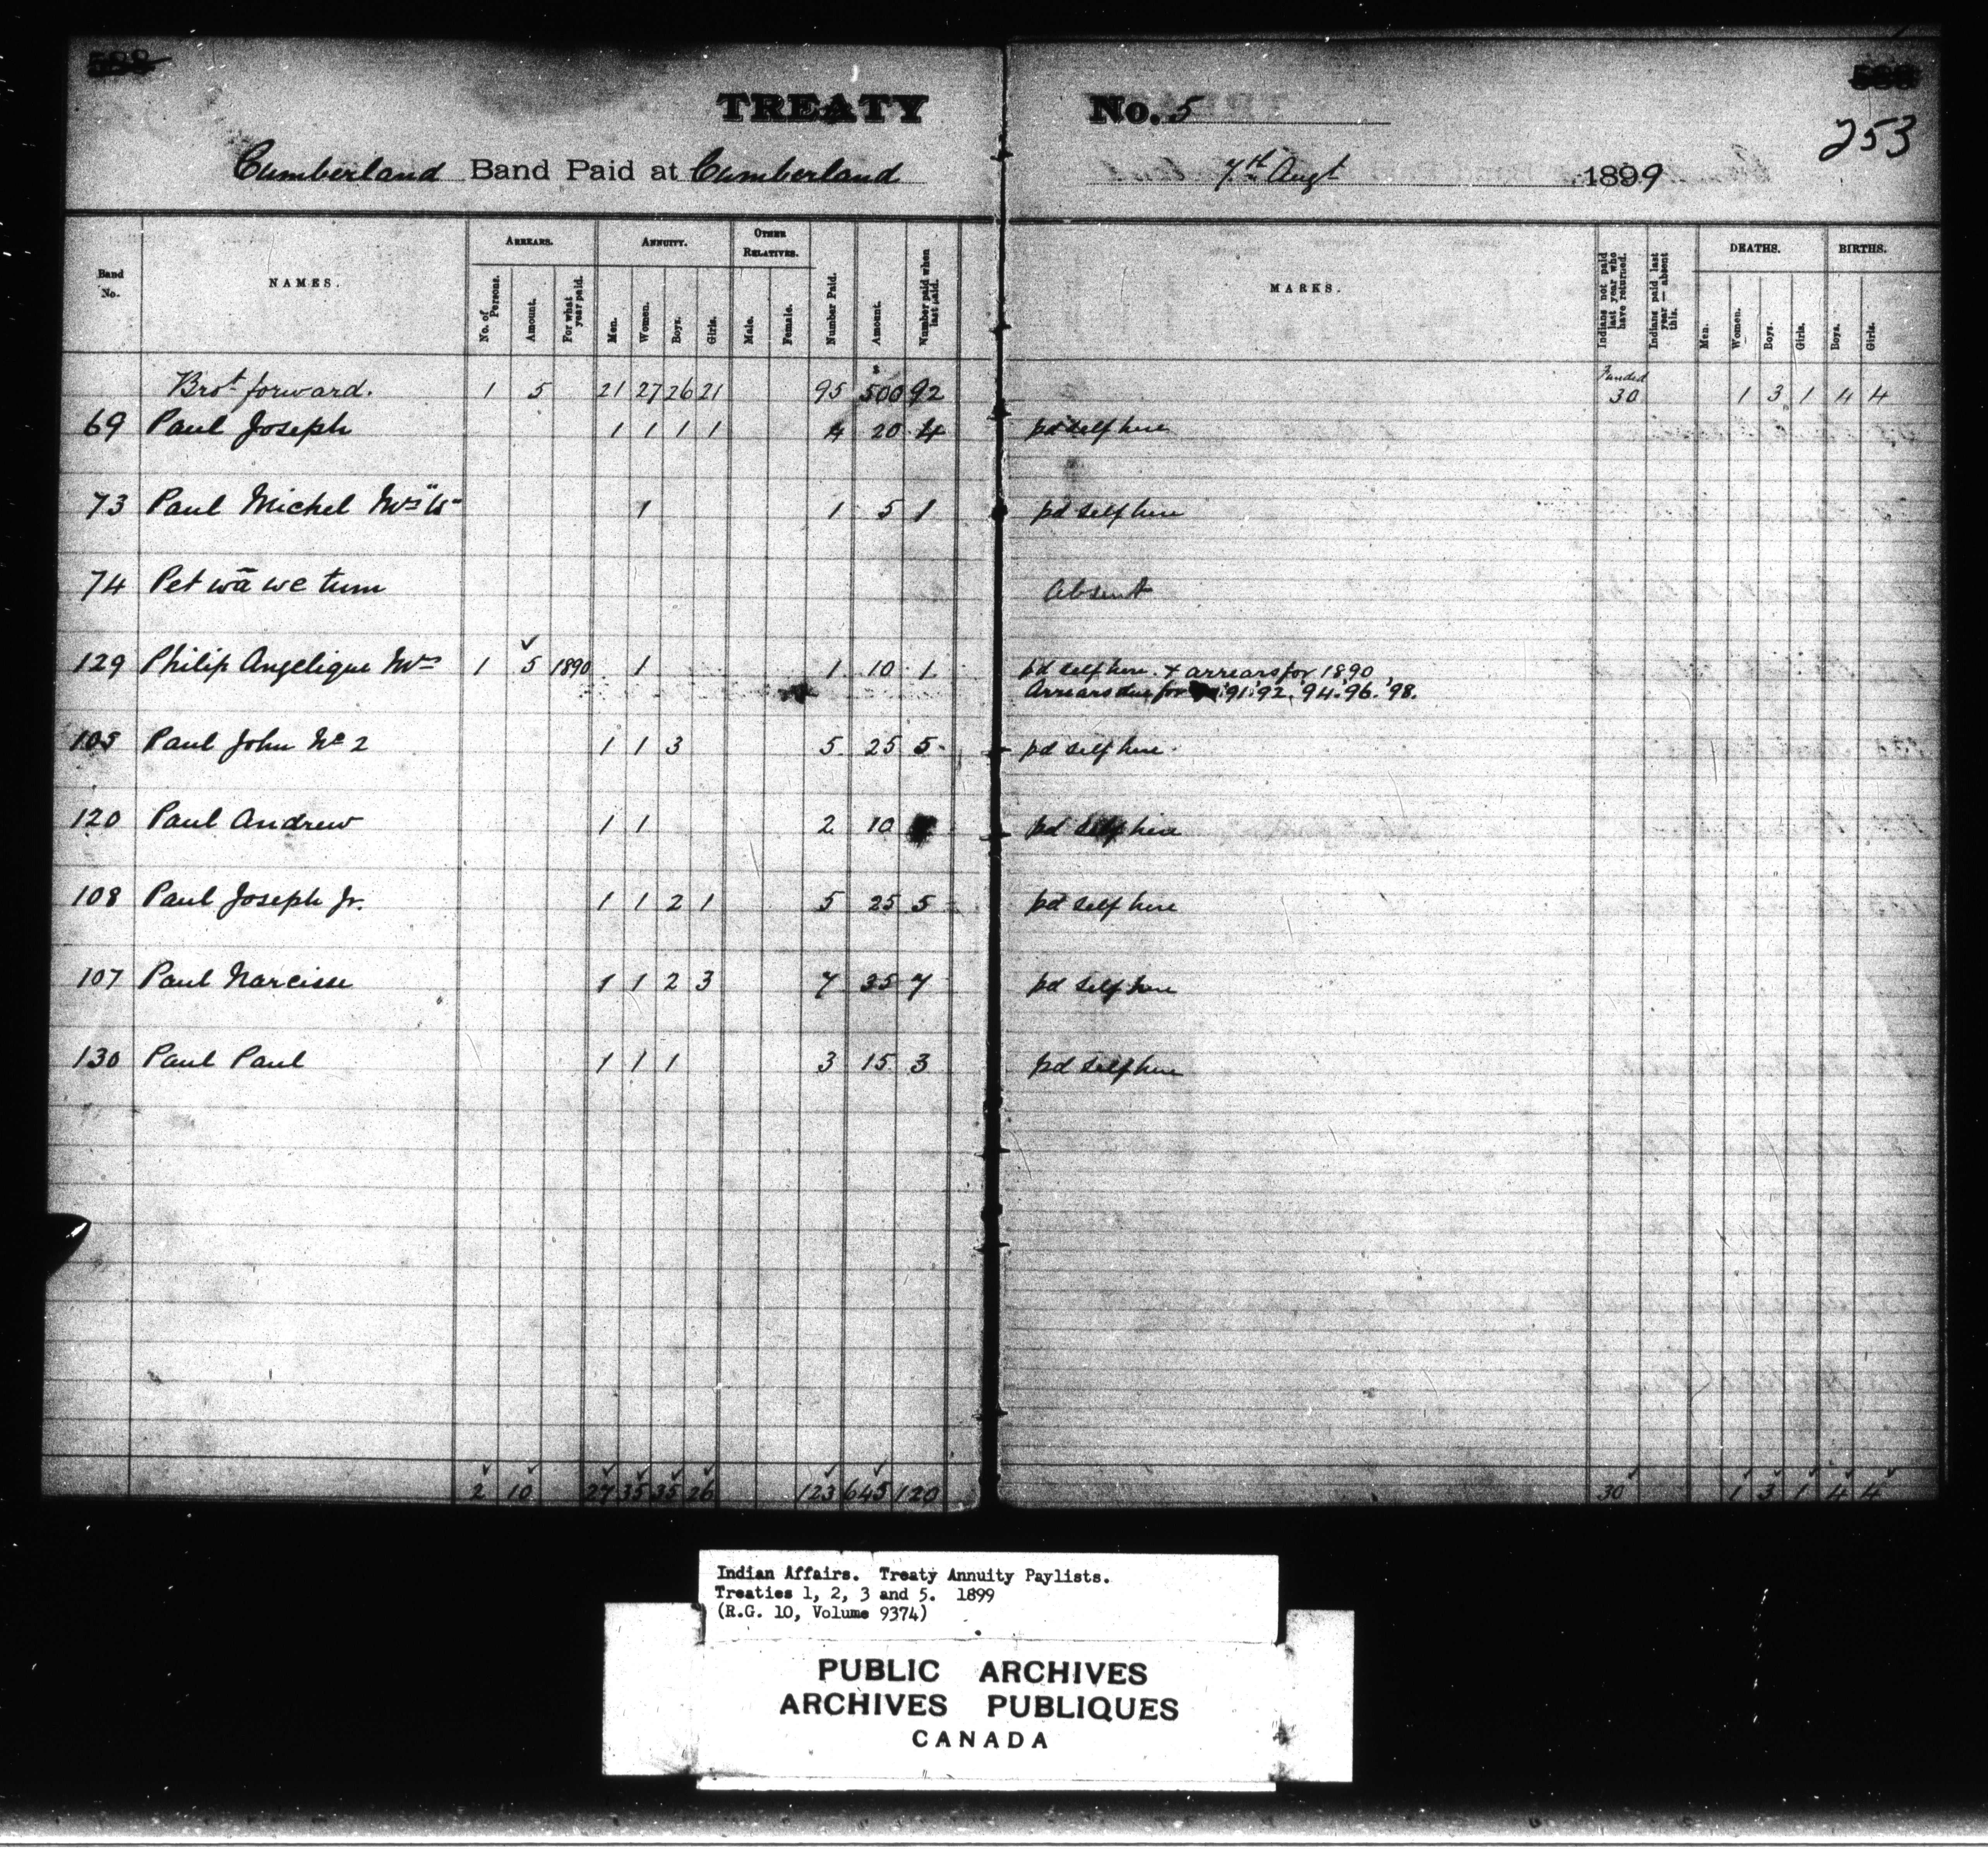 TREATY No. 5
253
Cumberland Band Paid at Cumberland 7th Augt 1899
Band No. NAMES. ARREARS. ANNUITY. OTHER RELATIVES. Number Paid. Amount. Number paid when last paid. MARKS. Indians not paid last year who have returned. Indians paid last year — absent this. DEATHS. BIRTHS.
No. of Persons. Amount. For what year paid. Men. Women. Boys. Girls. Male. Female. Men. Women. Boys. Girls. Boys. Girls.
Brot forward. 1 5 21 27 26 21 95 $500 92 Funded 30 1 3 1 4 4
69 Paul Joseph 1 1 1 1 4 20 4 pd self here
73 Paul Michel Mrs 1 1 5 1 pd self here
74 Pet wā we tum Absent
129 Philip Angelique Mrs 1 5 1890 1 1 10 1 pd self here + arrears for 1890
Arrears due for '91 '92, '94. '96. '98.
105 Paul John No 2 1 1 3 5 25 5 pd self here
120 Paul Andrew 1 1 2 10 pd self here
108 Paul Joseph Jr. 1 1 2 1 5 25 5 pd self here
107 Paul Narcisse 1 1 2 3 7 35 7 pd self here
130 Paul Paul 1 1 1 3 15 3 pd self here
2 10 27 35 35 26 123 645 120 30 1 3 1 4 4
Indian Affairs. Treaty Annuity Paylists.
Treaties 1, 2, 3 and 5. 1899
(R.G. 10, Volume 9374)
PUBLIC ARCHIVES
ARCHIVES PUBLIQUES
CANADA